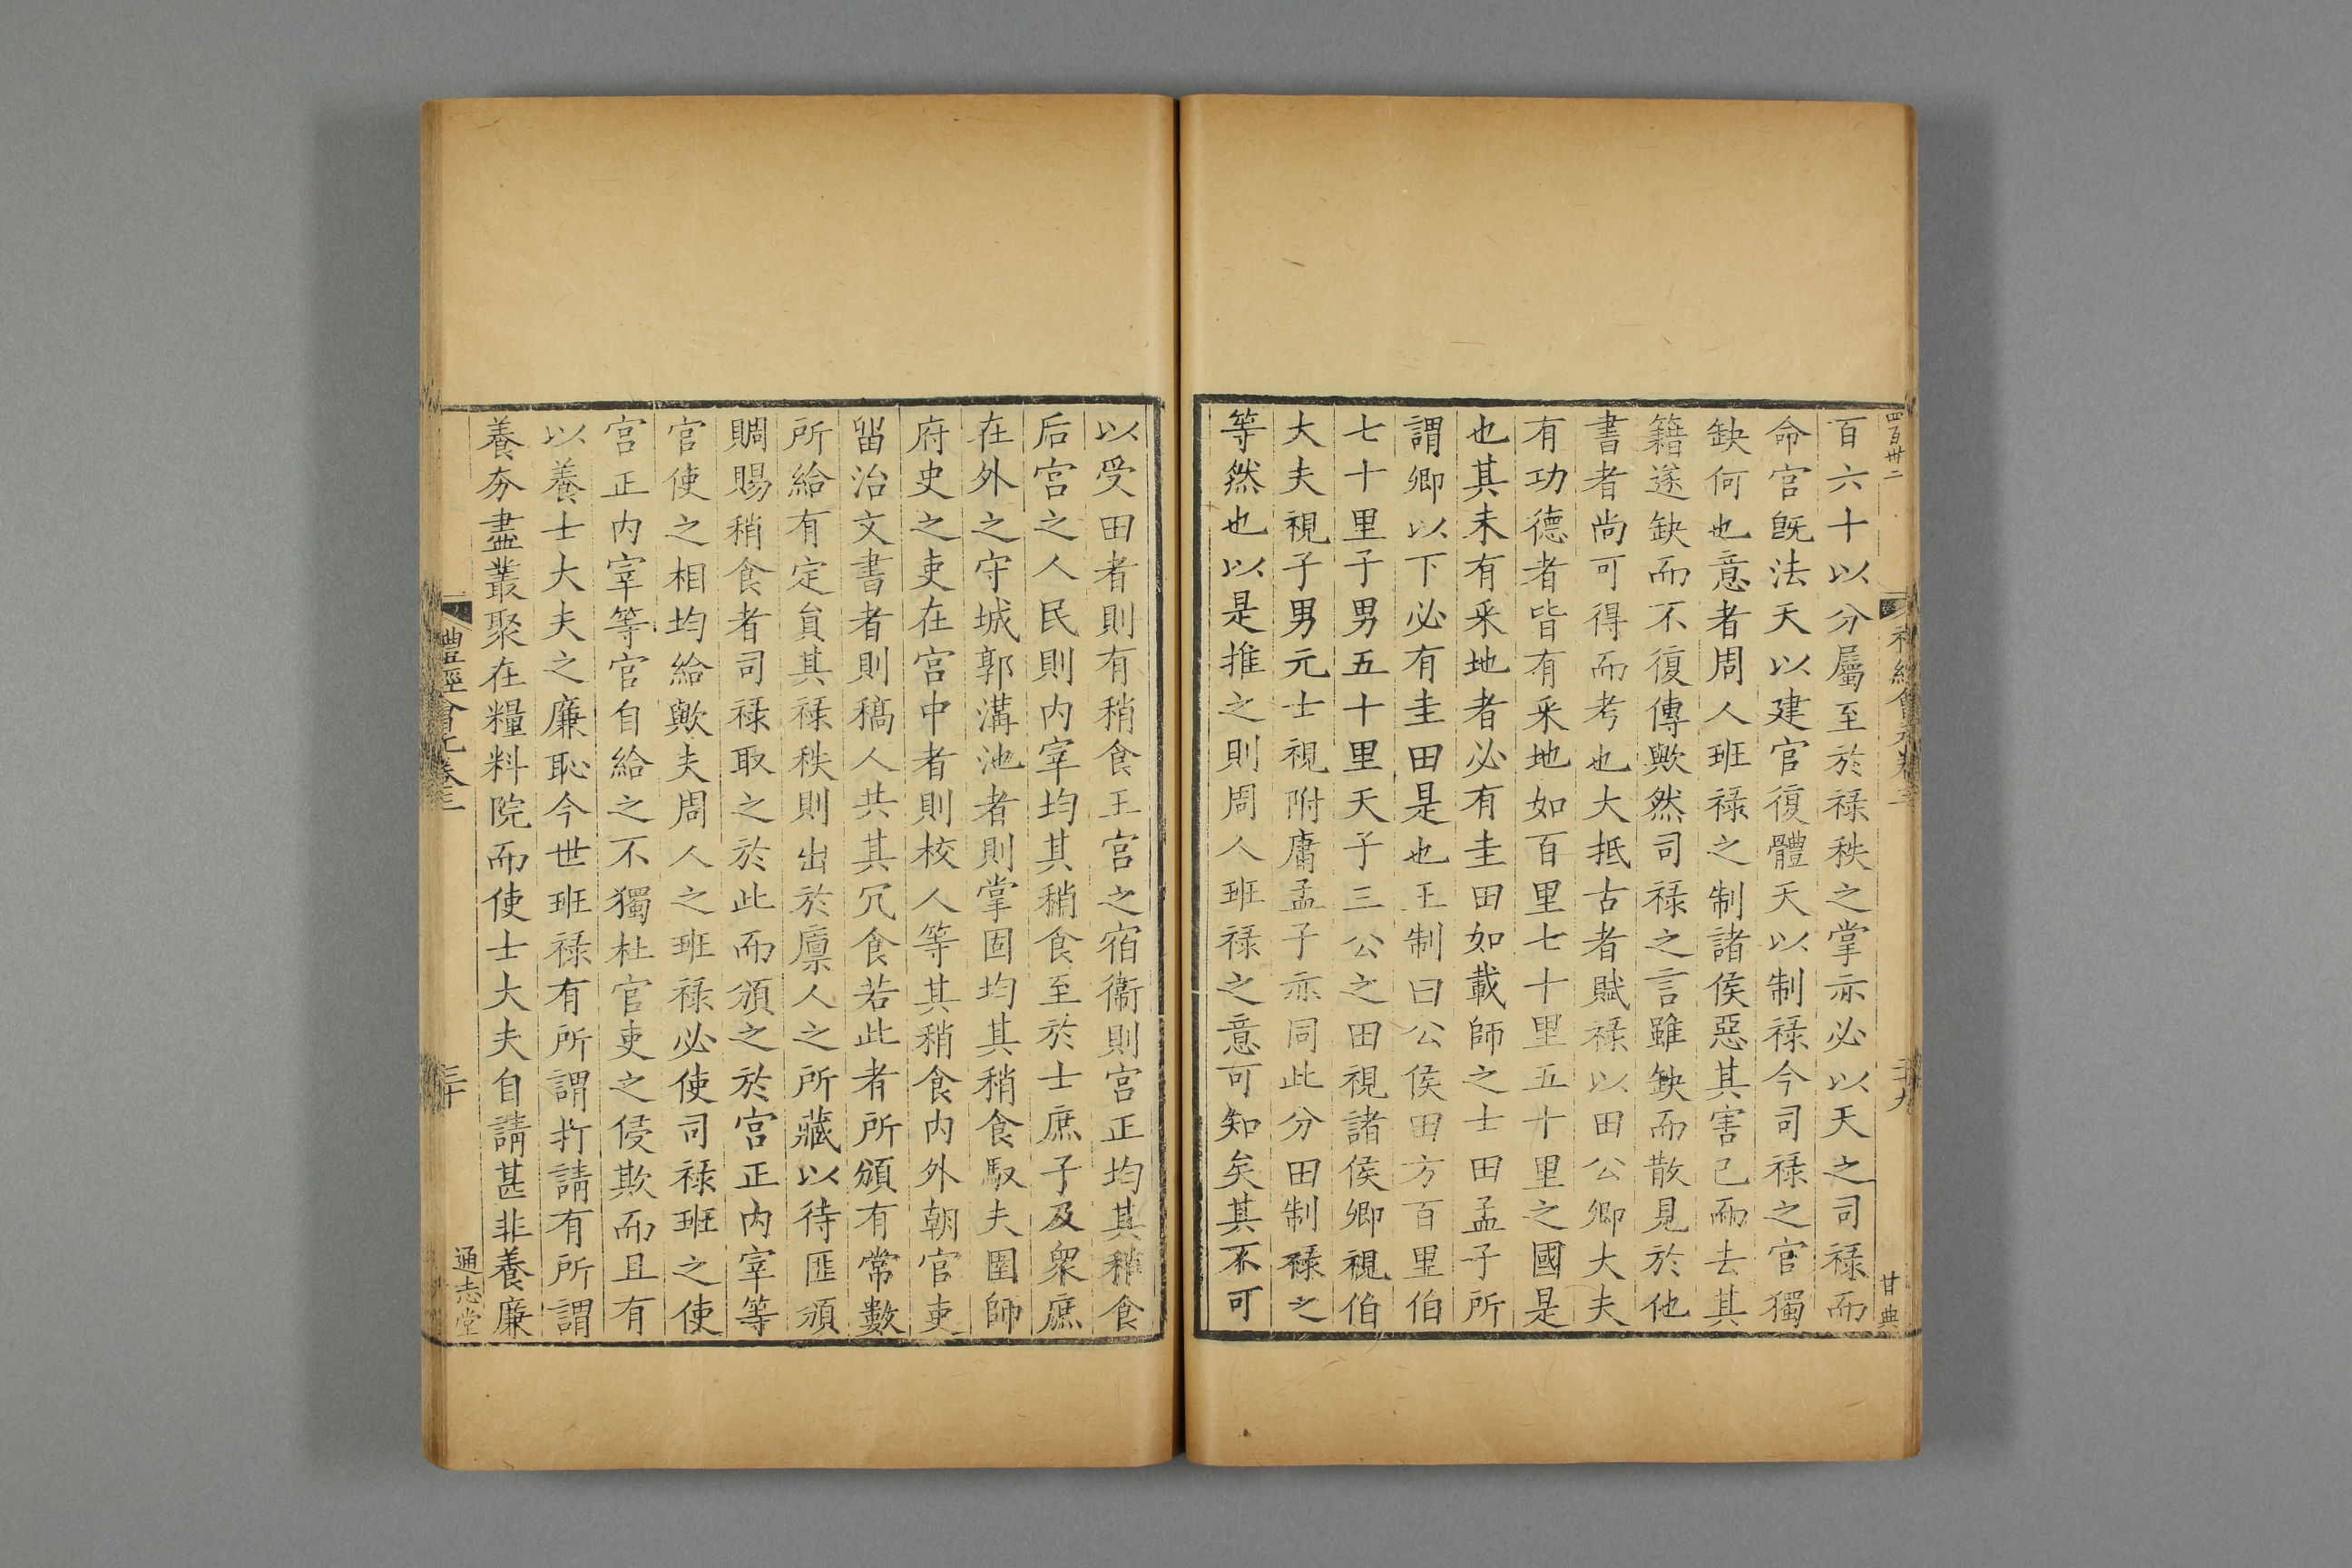 四百卅二
禮經會元卷三
二十九
甘典
百六十以分屬至於禄秩之掌亦必以天之司禄而
命官旣法天以建官復體天以制禄今司禄之官獨
缺何也意者周人班禄之制諸侯惡其害己而去其
籍遂缺而不復傳歟然司禄之言雖缺而散見於他
書者尚可得而考也大抵古者賦禄以田公卿大夫
有功德者皆有采地如百里七十里五十里之國是
也其未有采地者必有圭田如載師之士田孟子所
謂卿以下必有圭田是也王制曰公侯田方百里伯
七十里子男五十里天子三公之田視諸侯卿視伯
大夫視子男元士視附庸孟子亦同此分田制禄之
等然也以是推之則周人班禄之意可知矣其不可
以受田者則有稍食王宫之宿衞則宫正均其稍食
后宫之人民則内宰均其稍食至於士庶子及衆庶
在外之守城郭溝池者則掌固均其稍食馭夫圉師
府史之吏在宫中者則校人等其稍食内外朝官吏
留治文書者則槁人共其冗食若此者所頒有常數
所給有定負其禄秩則出於廪人之所藏以待匪頒
賙賜稍食者司禄取之於此而頒之於宫正内宰等
官使之相均給歟夫周人之班禄必使司禄班之使
宫正内宰等官自給之不獨杜官吏之侵欺而且有
以養士大夫之廉恥今世班禄有所謂折請有所謂
養夯盡叢聚在糧料院而使士大夫自請甚非養廉
禮經會元卷三
三十
通志堂